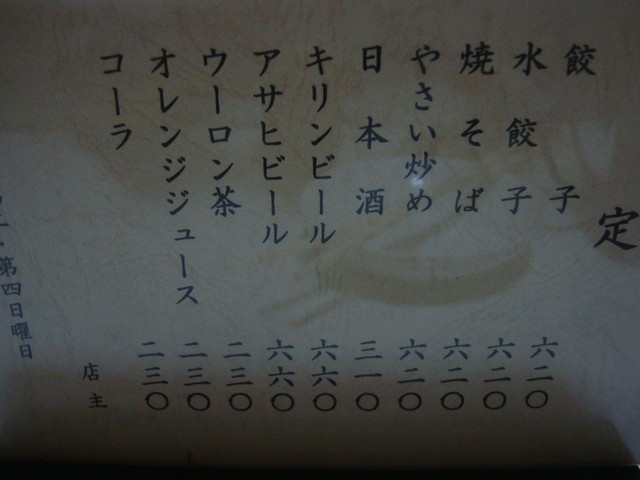 定
餃子 六二〇
水餃子 六二〇
焼そば 六二〇
やさい炒め 六二〇
日本酒 三一〇
キリンビール 六六〇
アサヒビール 六六〇
ウーロン茶 二三〇
オレンジジュース 二三〇
コーラ 二三〇
店主
・第四日曜日